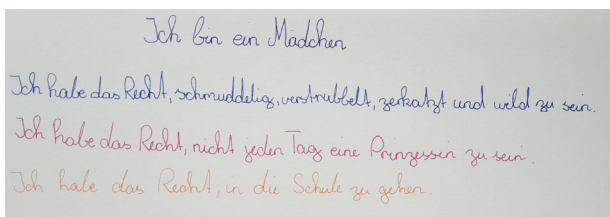 Ich bin ein Mädchen
Ich habe das Recht, schmuddelig, verstrubbelt, zerkatzt und wild zu sein.
Ich habe das Recht, nicht jeden Tag eine Prinzessin zu sein.
Ich habe das Recht, in die Schule zu gehen.